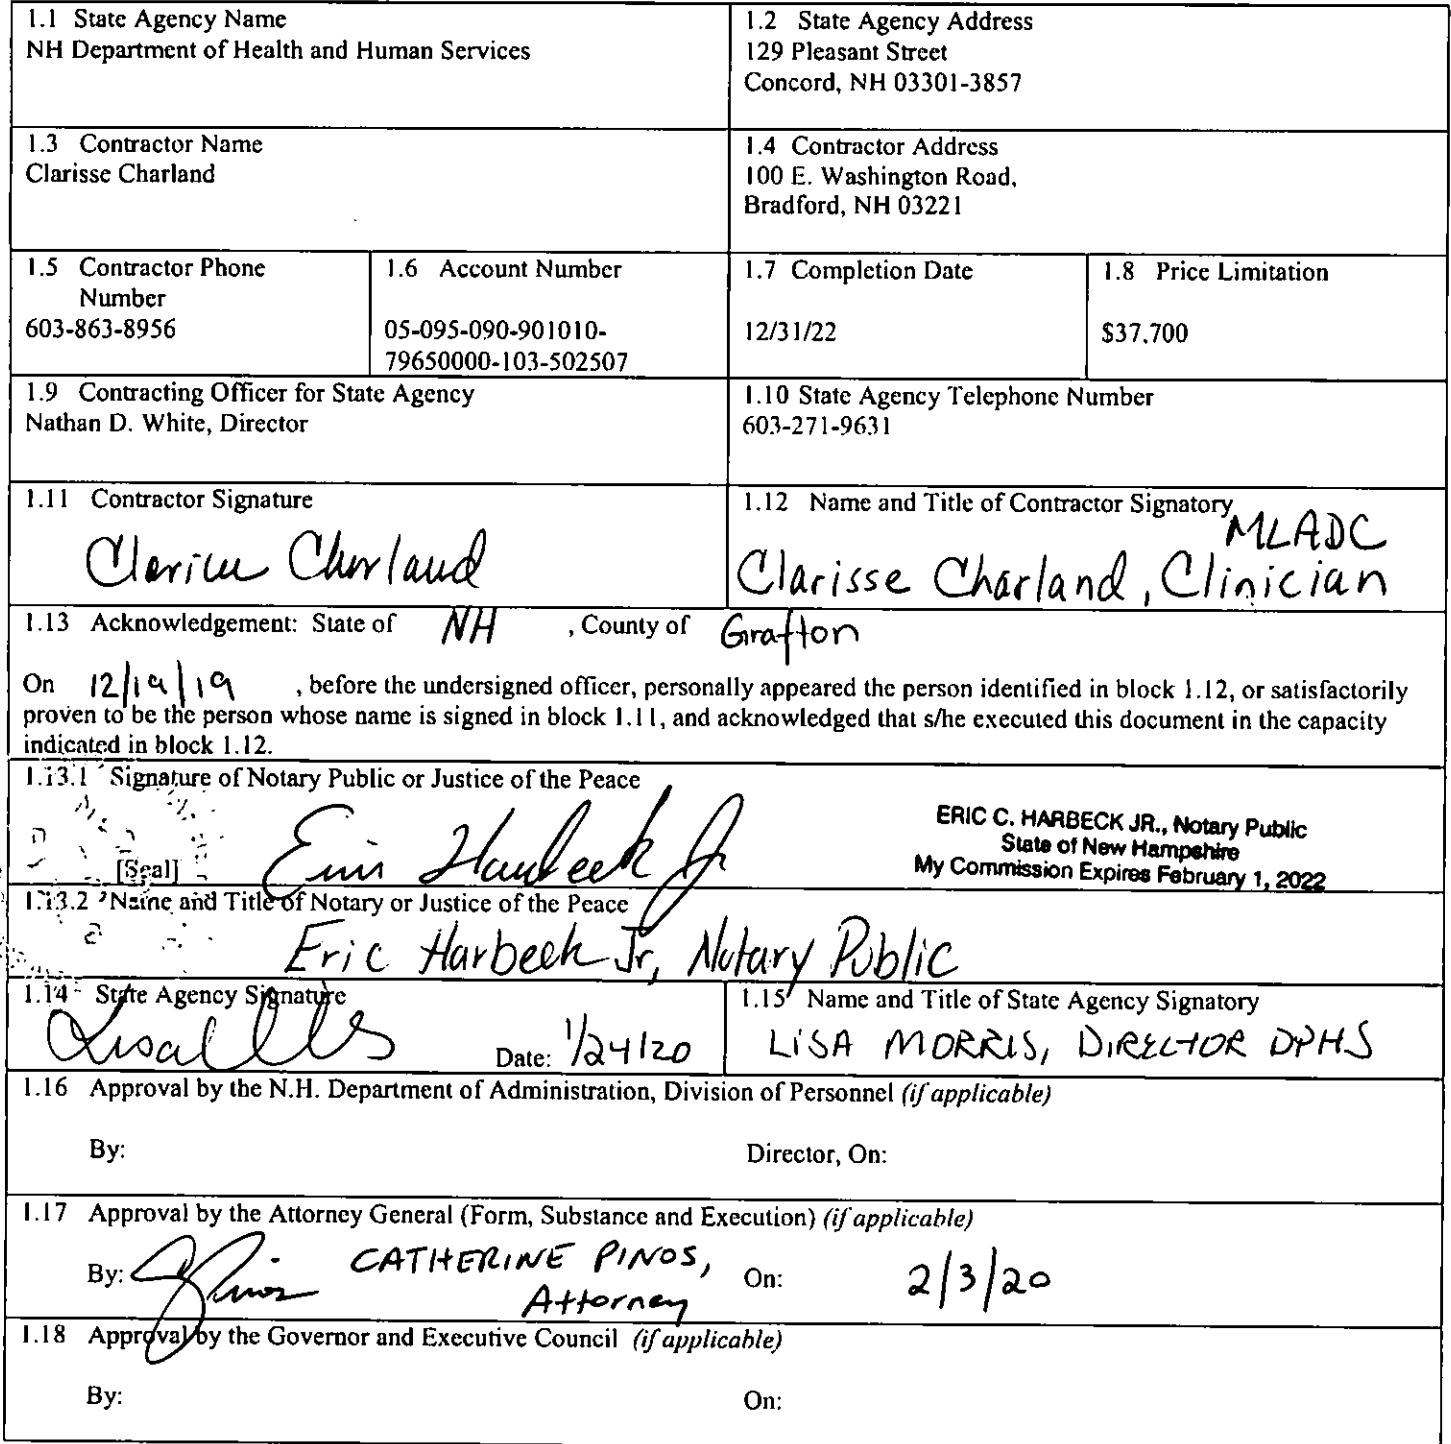 1.1 State Agency Name
NH Department of Health and Human Services
1.2 State Agency Address
129 Pleasant Street
Concord, NH 03301-3857
1.3 Contractor Name
Clarisse Charland
1.4 Contractor Address
100 E. Washington Road,
Bradford, NH 03221
1.5 Contractor Phone
Number
603-863-8956
1.6 Account Number
05-095-090-901010-
79650000-103-502507
1.7 Completion Date
12/31/22
1.8 Price Limitation
$37,700
1.9 Contracting Officer for State Agency
Nathan D. White, Director
1.10 State Agency Telephone Number
603-271-9631
1.11 Contractor Signature
Clarisse Charland
1.12 Name and Title of Contractor Signatory
MLADC
Clarisse Charland, Clinician
1.13 Acknowledgement: State of NH , County of Grafton
On 12/19/19 , before the undersigned officer, personally appeared the person identified in block 1.12, or satisfactorily
proven to be the person whose name is signed in block 1.11, and acknowledged that s/he executed this document in the capacity
indicated in block 1.12.
1.13.1 Signature of Notary Public or Justice of the Peace
ERIC C. HARBECK JR., Notary Public
State of New Hampshire
My Commission Expires February 1, 2022
[Seal] Eric Harbeck Jr
1.13.2 Name and Title of Notary or Justice of the Peace
Eric Harbeck Jr, Notary Public
1.14 State Agency Signature
Date: 1/24/20
1.15 Name and Title of State Agency Signatory
LISA MORRIS, DIRECTOR DPHS
1.16 Approval by the N.H. Department of Administration, Division of Personnel (if applicable)
By: Director, On:
1.17 Approval by the Attorney General (Form, Substance and Execution) (if applicable)
By: CATHERINE PINOS, On: 2/3/20
Attorney
1.18 Approval by the Governor and Executive Council (if applicable)
By: On: